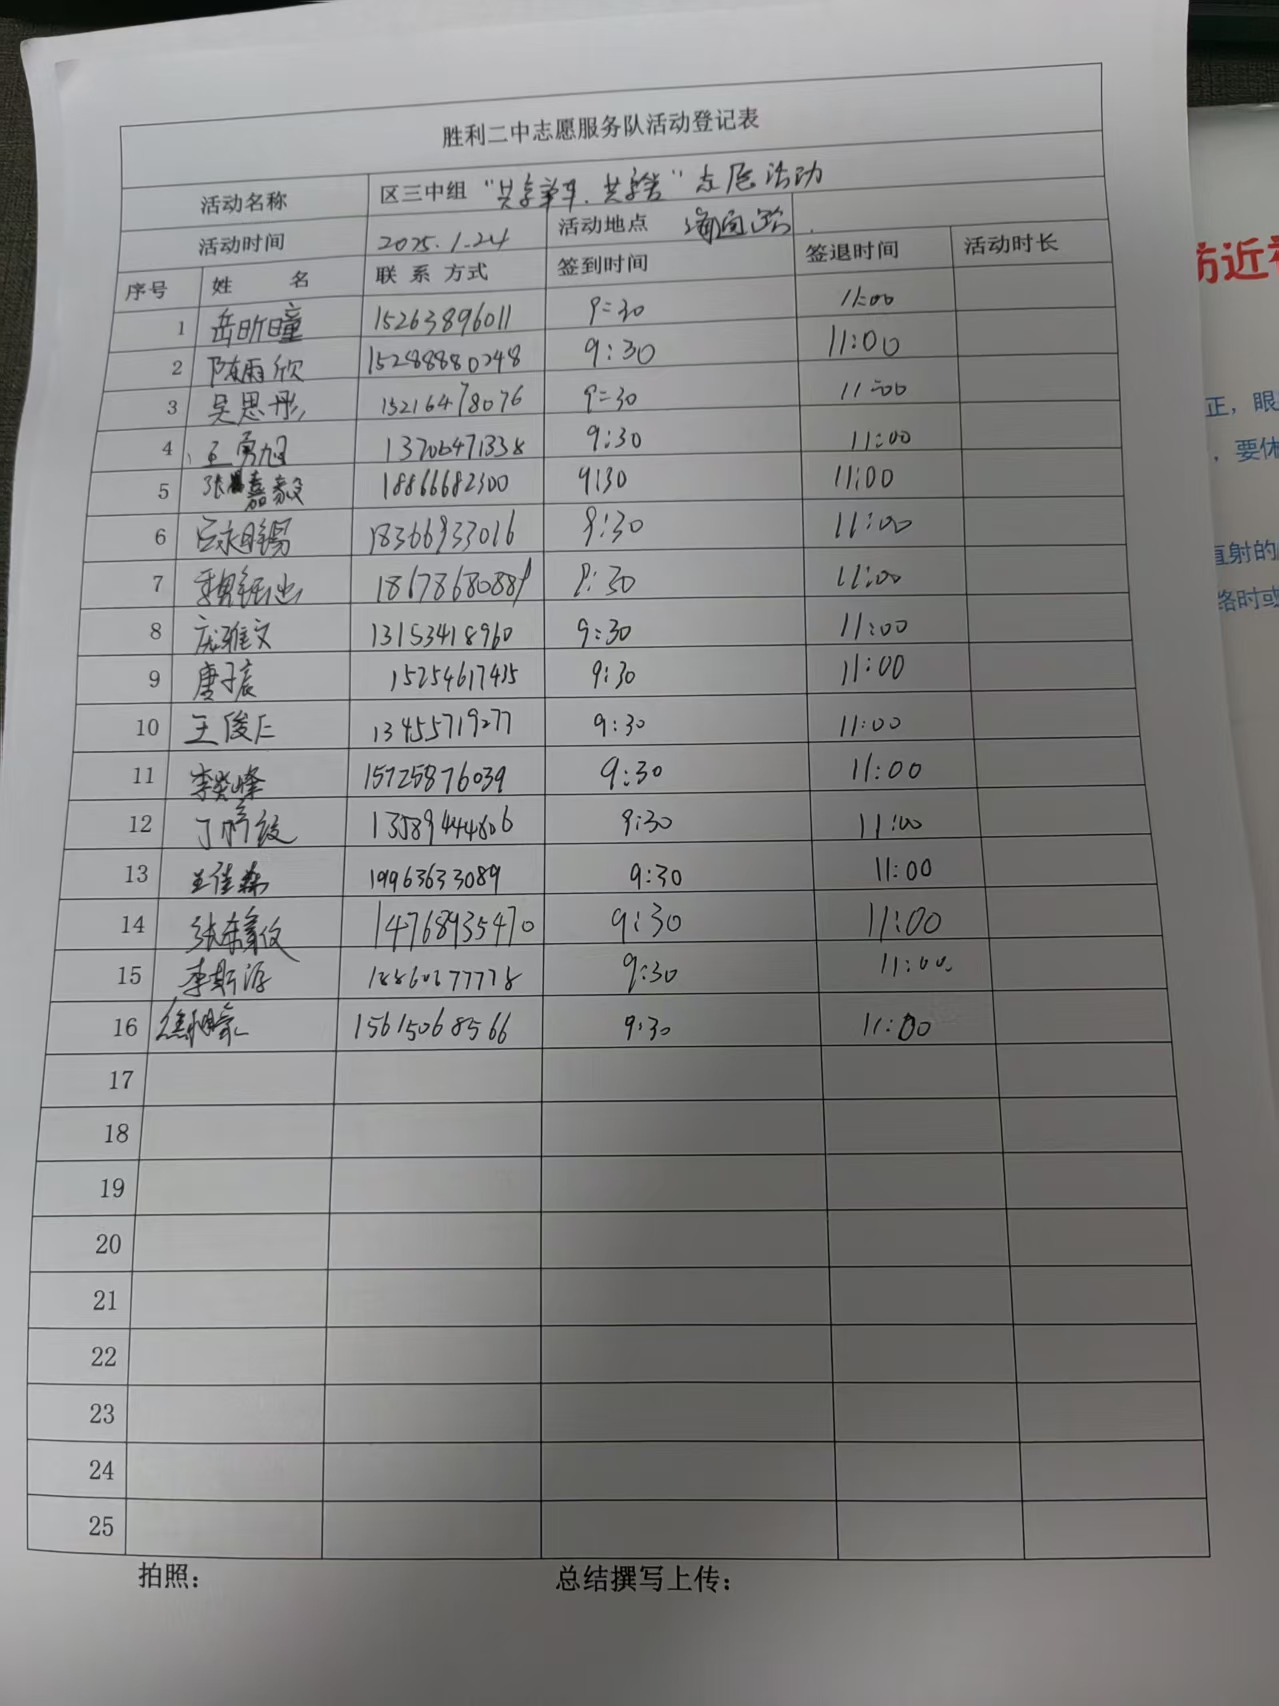 胜利二中志愿服务队活动登记表
活动名称 区三中组 "共享单车、共享" 志愿活动
活动时间 2025.1.24 活动地点
序号 姓 名 联系方式 签到时间 签退时间 活动时长
1 岳昕瞳 15263896011 9:30 11:00
2 陈雨欣 15288880248 9:30 11:00
3 吴思彤 15216478076 9:30 11:00
4 王勇旭 13706471338 9:30 11:00
5 张嘉毅 18866682300 9:30 11:00
6 18366933016 9:30 11:00
7 18678680889 9:30 11:00
8 庞雅文 13153418960 9:30 11:00
9 唐子宸 15254617415 9:30 11:00
10 王俊仁 13455719277 9:30 11:00
11 李奕峰 15725876039 9:30 11:00
12 13589444806 9:30 11:00
13 王佳 19963633089 9:30 11:00
14 14768935470 9:30 11:00
15 李斯源 9:30 11:00
16 15615068566 9:30 11:00
17
18
19
20
21
22
23
24
25
拍照： 总结撰写上传：
防近
正，眼
，要休
直射的
络时或